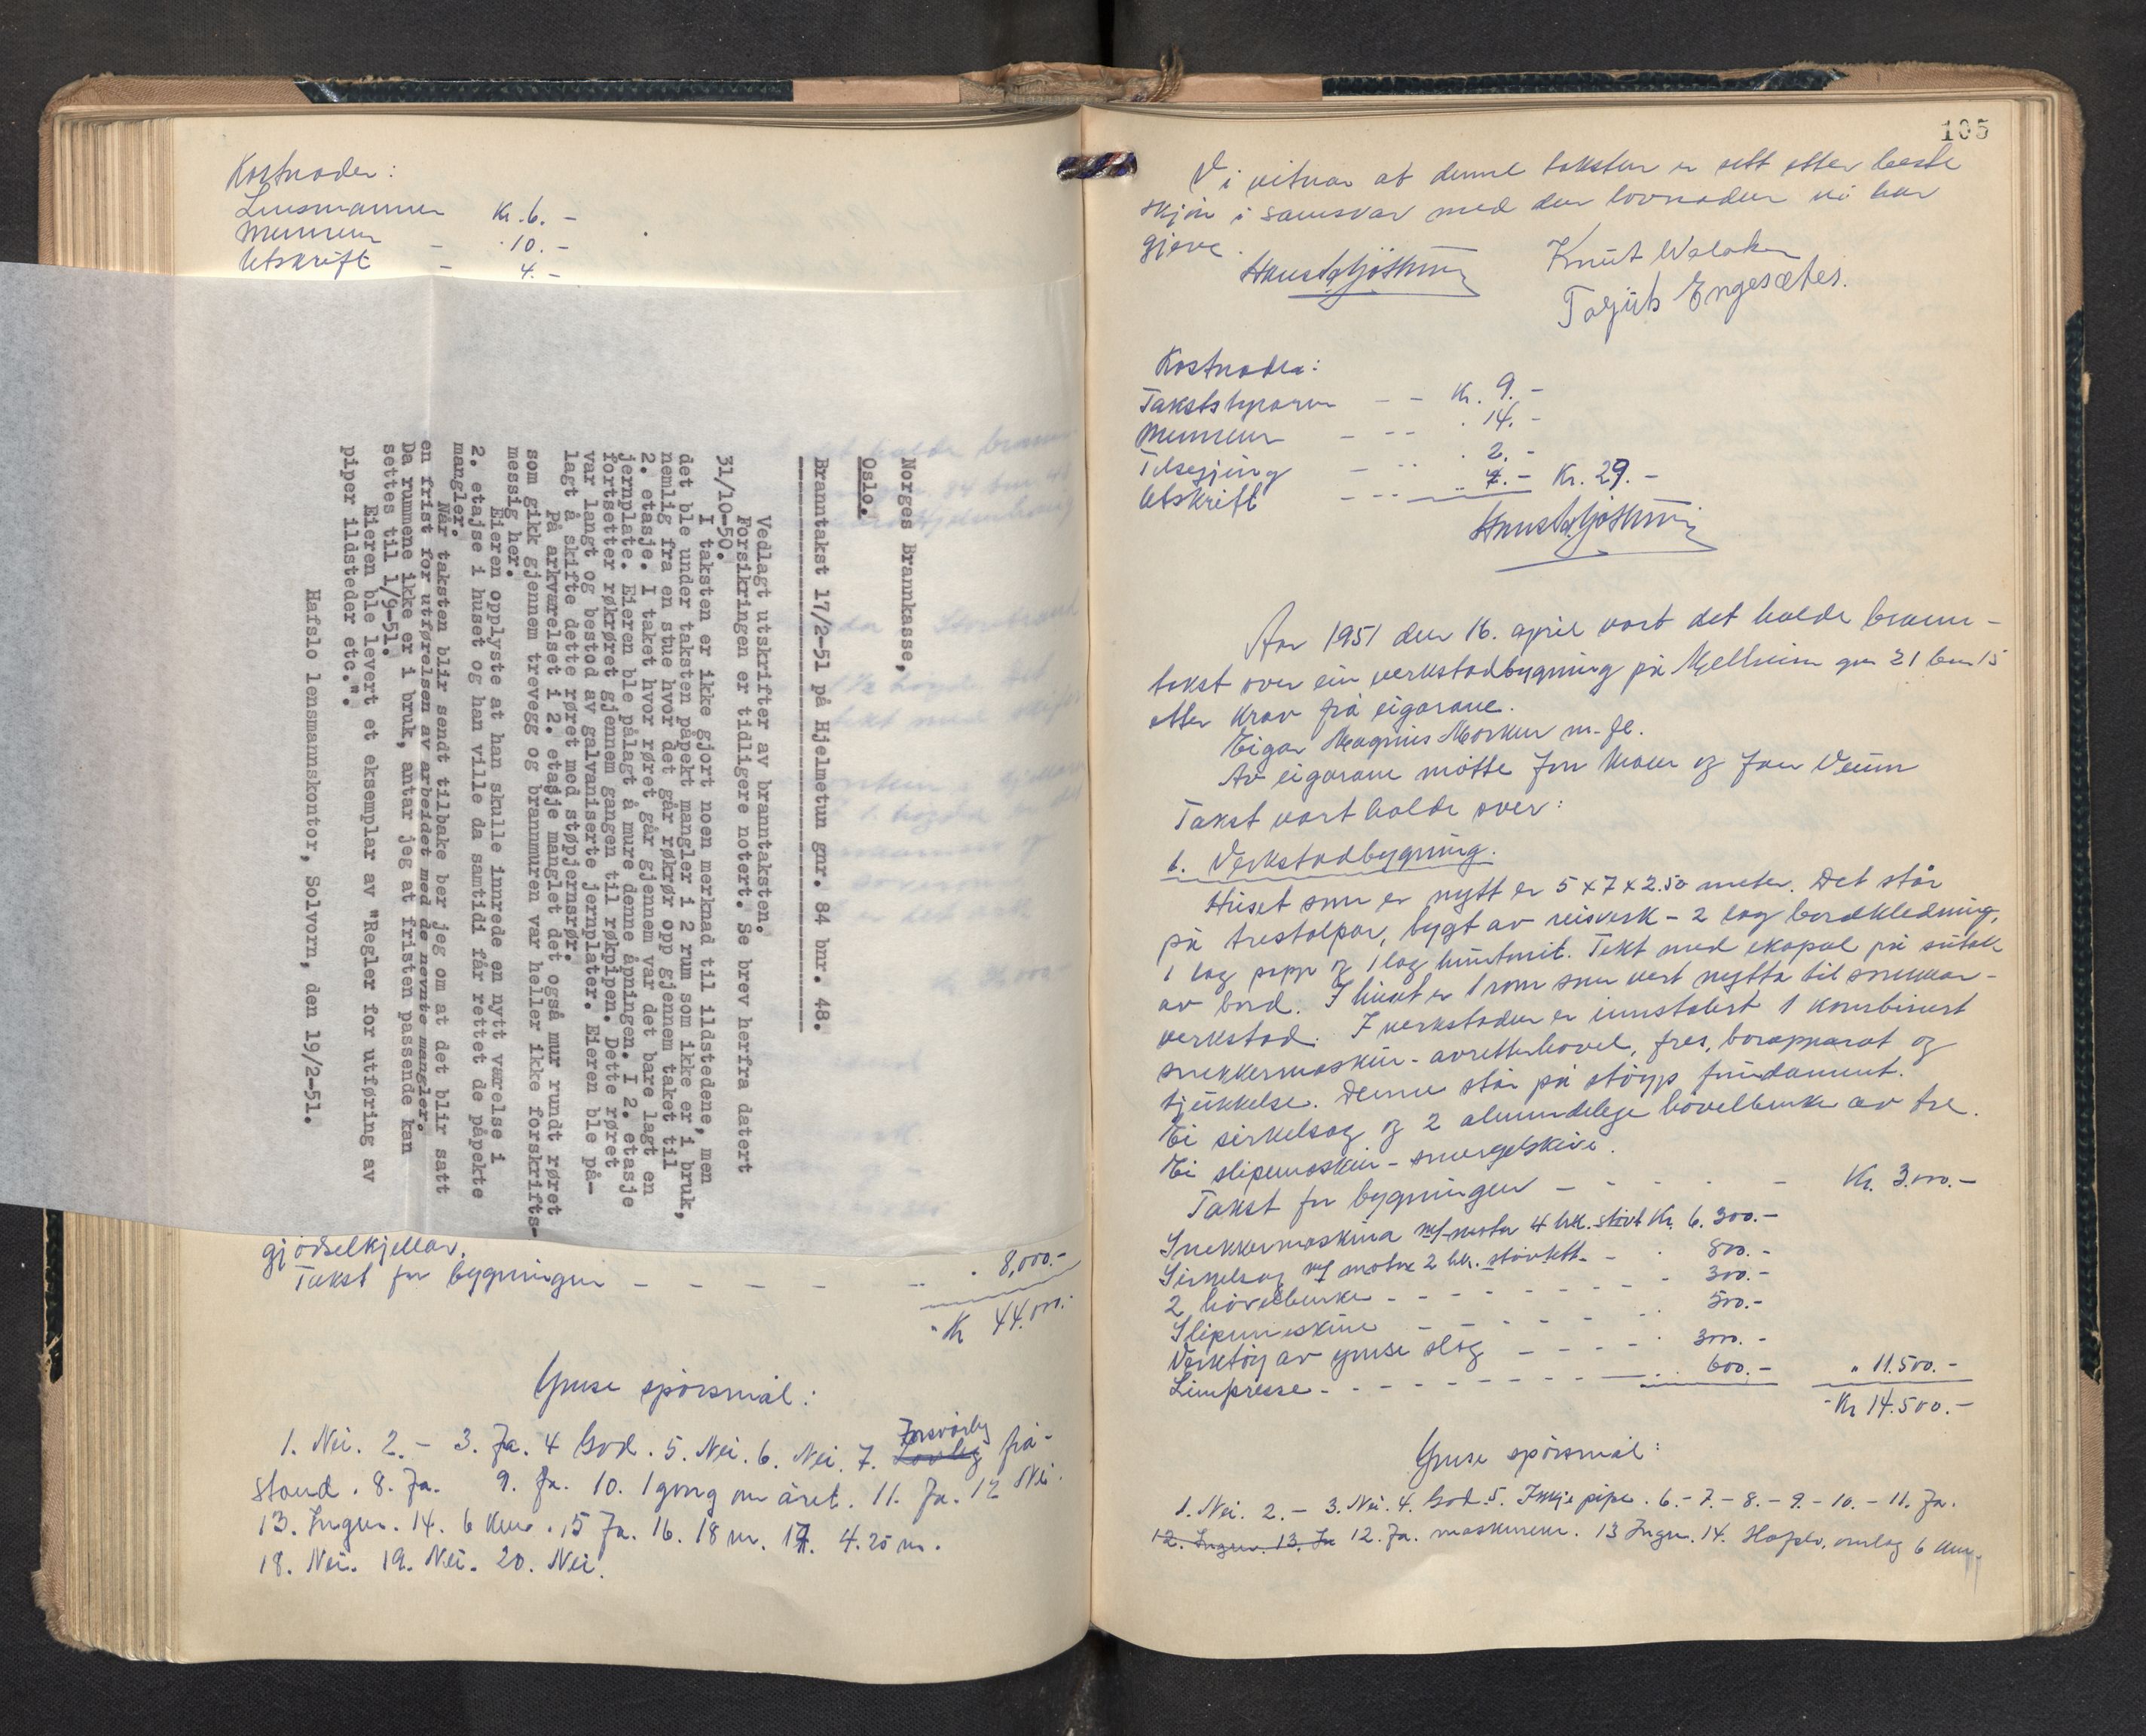 Kostnader:
Lensmannen Kr. 6. -
Mennene - " 10. -
Utskrift - 4. -
Norges Brannkasse,
Oslo.
Branntakst 17/2-51 på Hjelmetun gnr. 84 bnr. 48.
Vedlagt utskrifter av branntaksten.
Forsikringen er tidligere notert. Se brev herfra datert
31/10-50.
I taksten er ikke gjort noen merknad til ildstedene, men
det ble under taksten påpekt mangler i 2 rum som ikke er i bruk,
nemlig fra en stue hvor det går røkrør opp gjennem taket til
2. etasje. I taket hvor røret går gjennem var det bare lagt en
jernplate. Eieren ble pålagt å mure denne åpningen. I 2. etasje
fortsetter røkrøret gjennem gangen til røkpipen. Dette røret
var langt og bestod av galvaniserte jernplater. Eieren ble på-
lagt å skifte dette røret med støpjernsrør.
På arkværelset i 2. etasje manglet det også mur rundt røret
som gikk gjennem trevegg og brannmuren var heller ikke forskrifts-
messig her.
Eieren opplyste at han skulle innrede en nytt værelse i
2. etajse i huset og han ville da samtidi får rettet de påpekte
mangler.
Når taksten blir sendt tilbake ber jeg om at det blir satt
en frist for utførelsen av arbeidet med de nevnte mangler.
Da rummene ikke er i bruk, antar jeg at fristen passende kan
settes til 1/9-51.
Eieren ble levert et eksemplar av "Regler for utføring av
piper ildsteder etc.".
Hafslo lensmannskontor, Solvorn, den 19/2-51.
gjødselkjellar.
Takst for bygningen - - - - - " 8,000.-
" Kr 44.000.-
Ymse spørsmål:
1. Nei. 2. - 3. Ja. 4 God. 5. Nei. 6. Nei. 7. Lovleg Forsvarleg frå-
stand. 8. Ja. 9. Ja. 10. 1 gong om året. 11. Ja. 12 Nei.
13. Ingen. 14. 6 km. 15 Ja. 16. 18 m. 17. 4.25 m.
18. Nei. 19. Nei. 20. Nei.
105
Vi vitnar at denne taksten er sett etter beste
skjøn i samsvar med den lovnaden vi har
gjeve.
Knut Walaker
Torjus Engesæter.
Kostnader:
Takststyraren - - Kr. 9. -
Mennene - - - " 14. -
Tilseiing - - - " 2. -
Utskrift - - - 4. - Kr. 29. -
Aar 1951 den 16. april vart det halde brann-
takst over ein verkstadbygning på Mellheim gnr 21 bnr 15
etter krav frå eigarane.
Eigar Magnus Morken m. fl.
Av eigarane møtte Jon Moen og Jon Veum
Takst vart halde over:
1. Verkstadbygning.
Huset som er nytt er 5 x 7 x 2.50 meter. Det står
på trestolpar, bygt av reisverk - 2 lag bordkledning,
1 lag papp og 1 lag huntonit. Tekt med ekapal på sutak
av bord. I huset er 1 rom som vert nytta til snekkar-
verkstad. I verkstaden er innstalert 1 kombinert
snekkermaskin - avretterhovel, fres, borapparat og
tjukkelse. Denne står på støyp fundament.
Ei sirkelsag og 2 alminnelege høvelbenker av tre.
Ei slipemaskin - smergelskive.
Takst for bygningen - - - - - Kr. 3.000.-
Snekkermaskina m/ motor 4 hk. støvt. Kr. 6.300.-
Sirkelsag m/ motor 2 hk. støvtett - " 800.-
2 høvelbenker - - - - - - - 300.-
Slipemaskine - - - - - " 500.-
Verktøy av ymse slag - - - - " 3000.-
Limpresse - - - - - - - - - 600.- " 11.500.-
" Kr 14.500.-
Ymse spørsmål:
1. Nei. 2. - 3. Nei. 4. God. 5. Inkje pipe. 6. - 7. - 8. - 9. - 10. - 11. Ja.
12. Ingen. 13. Ja 12. Ja. maskinene. 13 Ingen. 14. Hafslo, omlag 6 km.